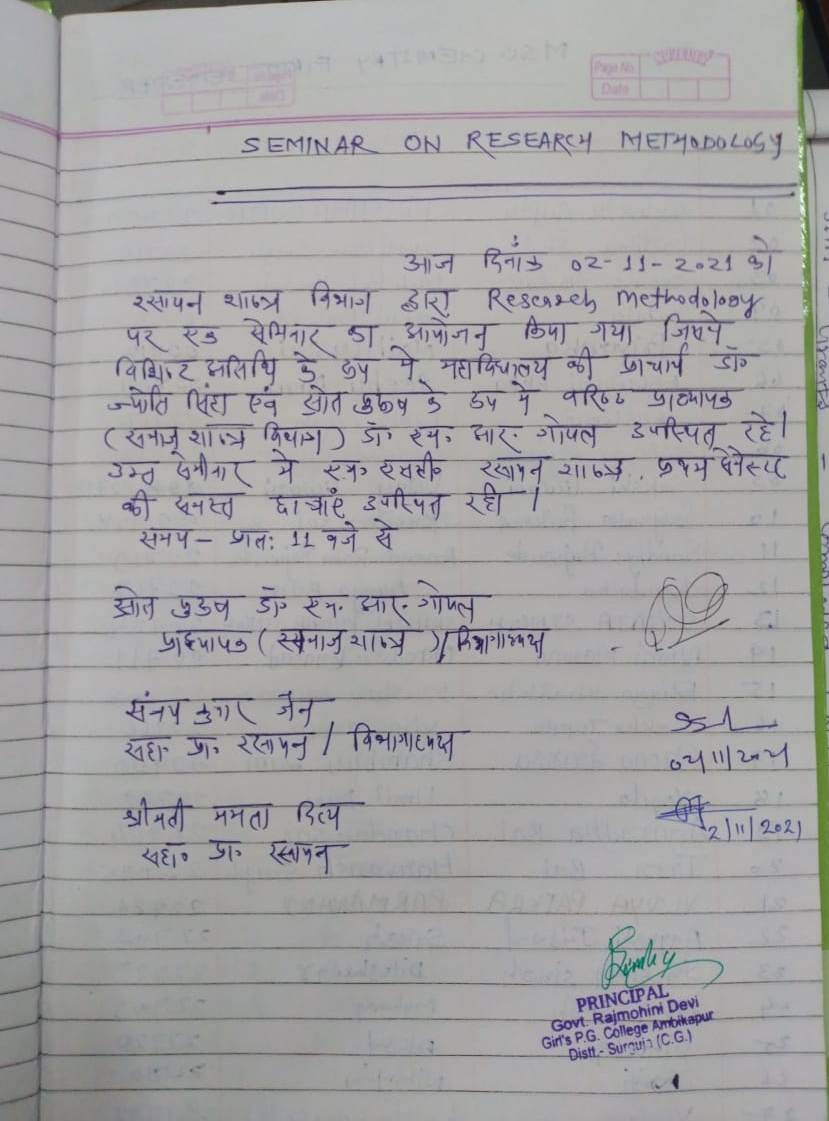 Page No.
Date
SEMINAR ON RESEARCH METHODOLOGY
आज दिनांक 02-11-2021 को
रसायन शास्त्र विभाग द्वारा Research Methodology
पर एक सेमिनार का आयोजन किया गया जिसमे
विशिष्ट अतिथि के रूप मे महाविद्यालय की प्राचार्य डॉ॰
ज्योति सिंहा एवं स्रोत पुरूष के रूप मे वरिष्ठ प्राध्यापक
(समाज शास्त्र विभाग) डॉ॰ एम॰ आर॰ गोयल उपस्थित रहे।
उक्त सेमीनार मे एम॰ एससी॰ रसायन शास्त्र प्रथम सेमेस्टर
की समस्त छात्राएं उपस्थित रही।
समय – प्रात: 11 बजे से
स्रोत पुरूष डॉ॰ एम॰ आर॰ गोयल
प्राध्यापक (समाज शास्त्र) / विभागाध्यक्ष
संजय कुमार जैन
सहा॰ प्रा॰ रसायन / विभागाध्यक्ष
02/11/2021
श्रीमती ममता
सहा॰ प्रा॰ रसायन
2/11/2021
PRINCIPAL
Govt. Rajmohini Devi
Girl's P.G. College Ambikapur
Distt.- Surguja (C.G.)